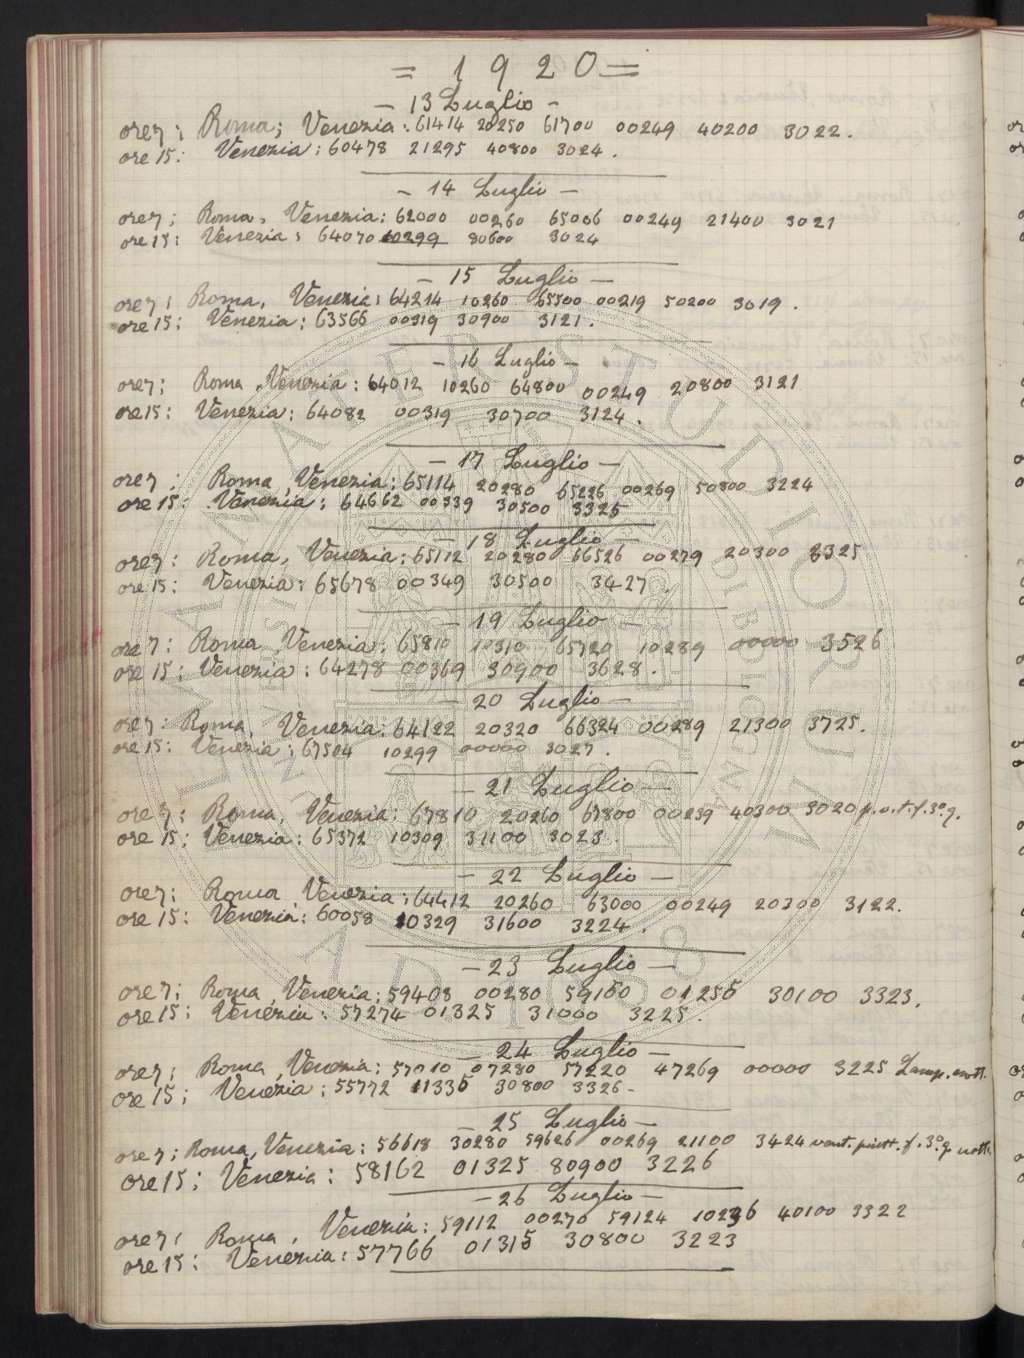 = 1920 =
– 13 Luglio –
ore 7: Roma; Venezia: 61414 20250 61700 00249 40200 3022.
ore 15: Venezia: 60478 21295 40800 3024.
– 14 Luglio –
ore 7: Roma, Venezia: 62000 00260 65006 00249 21400 3021
ore 15: Venezia: 64070 10299 80600 3024
– 15 Luglio –
ore 7: Roma, Venezia: 64214 10260 65500 00219 50200 3019.
ore 15: Venezia: 63566 00319 30900 3121.
– 16 Luglio –
ore 7: Roma, Venezia: 64012 10260 64800 00249 20800 3121
ore 15: Venezia: 64082 00319 30700 3124.
– 17 Luglio –
ore 7: Roma, Venezia: 65114 20280 65226 00269 50800 3224
ore 15: Venezia: 64662 00339 30500 3325
– 18 Luglio –
ore 7: Roma, Venezia: 65112 20280 66526 00279 20300 3325
ore 15: Venezia: 65678 00349 30500 3427.
– 19 Luglio –
ore 7: Roma, Venezia: 65810 10310 65720 10289 00000 3526
ore 15: Venezia: 64278 00369 30900 3628.
– 20 Luglio –
ore 7: Roma, Venezia: 64122 20320 66324 00289 21300 3725.
ore 15: Venezia: 67504 10299 00000 3027.
– 21 Luglio –
ore 7: Roma, Venezia: 67810 20260 67800 00239 40300 3020 p.o.t.f.3º g.
ore 15: Venezia: 65372 10309 31100 3023.
– 22 Luglio –
ore 7: Roma, Venezia: 64412 20260 63000 00249 20300 3122.
ore 15: Venezia: 60058 10329 31600 3224.
– 23 Luglio –
ore 7: Roma, Venezia: 59408 00280 59100 01256 30100 3323.
ore 15: Venezia: 57274 01325 31000 3225.
– 24 Luglio –
ore 7: Roma, Venezia: 57010 07280 57220 47269 00000 3225 Lamp. nott.
ore 15: Venezia: 55772 11336 30800 3326 –
– 25 Luglio –
ore 7: Roma, Venezia: 56618 30280 59626 00269 21100 3424 vent. piutt. f. 3º g. nott.
ore 15: Venezia: 58162 01325 80900 3226
– 26 Luglio –
ore 7: Roma, Venezia: 59112 00270 59124 10236 40100 3322
ore 15: Venezia: 57766 01315 30800 3223
ALMA MATER STUDIORUM
A.D. 1088